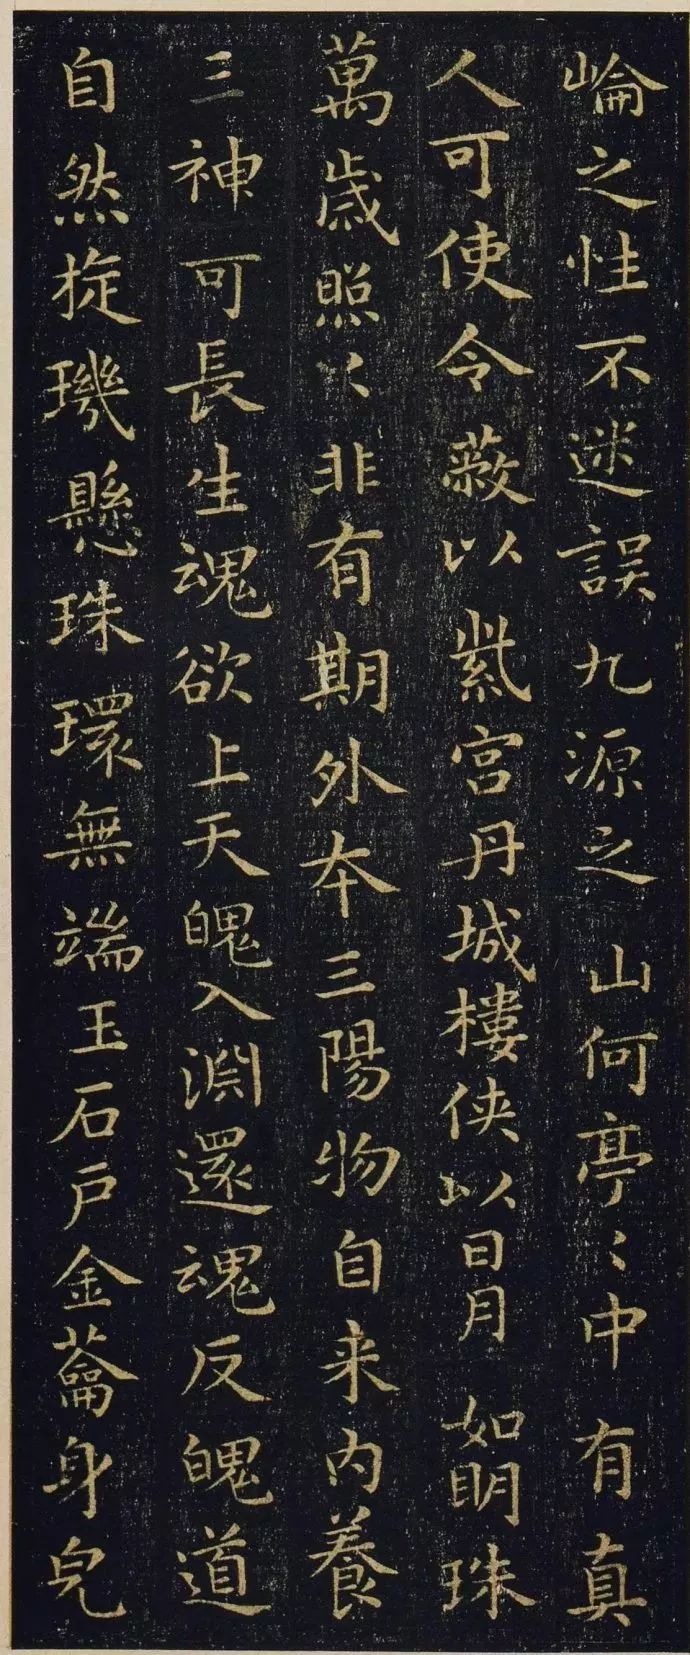 崘之性不迷誤九源之山何亭〻中有真
人可使令蔽以紫宫丹城樓侠以日月如明珠
萬歳照〻非有期外夲三陽物自来内養
三神可長生魂欲上天魄入淵還魂反魄道
自然㫌璣懸珠環無端玉石戶金籥身皃